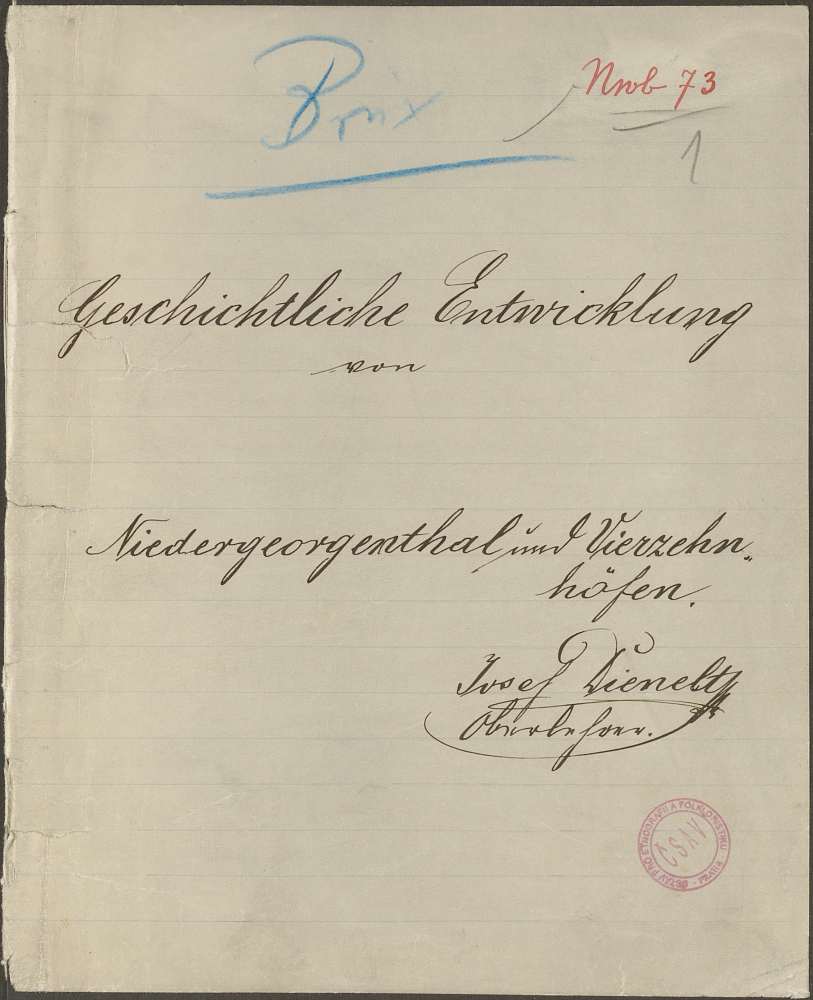 Brüx
Nwb 73
1
Geschichtliche Entwicklung
von
Niedergeorgenthal und Vierzehn„
höfen.
Josef Dienelt
Oberlehrer.
ÚSTAV PRO ETNOGRAFII A FOLKLORISTIKU - PRAHA -
ČSAV